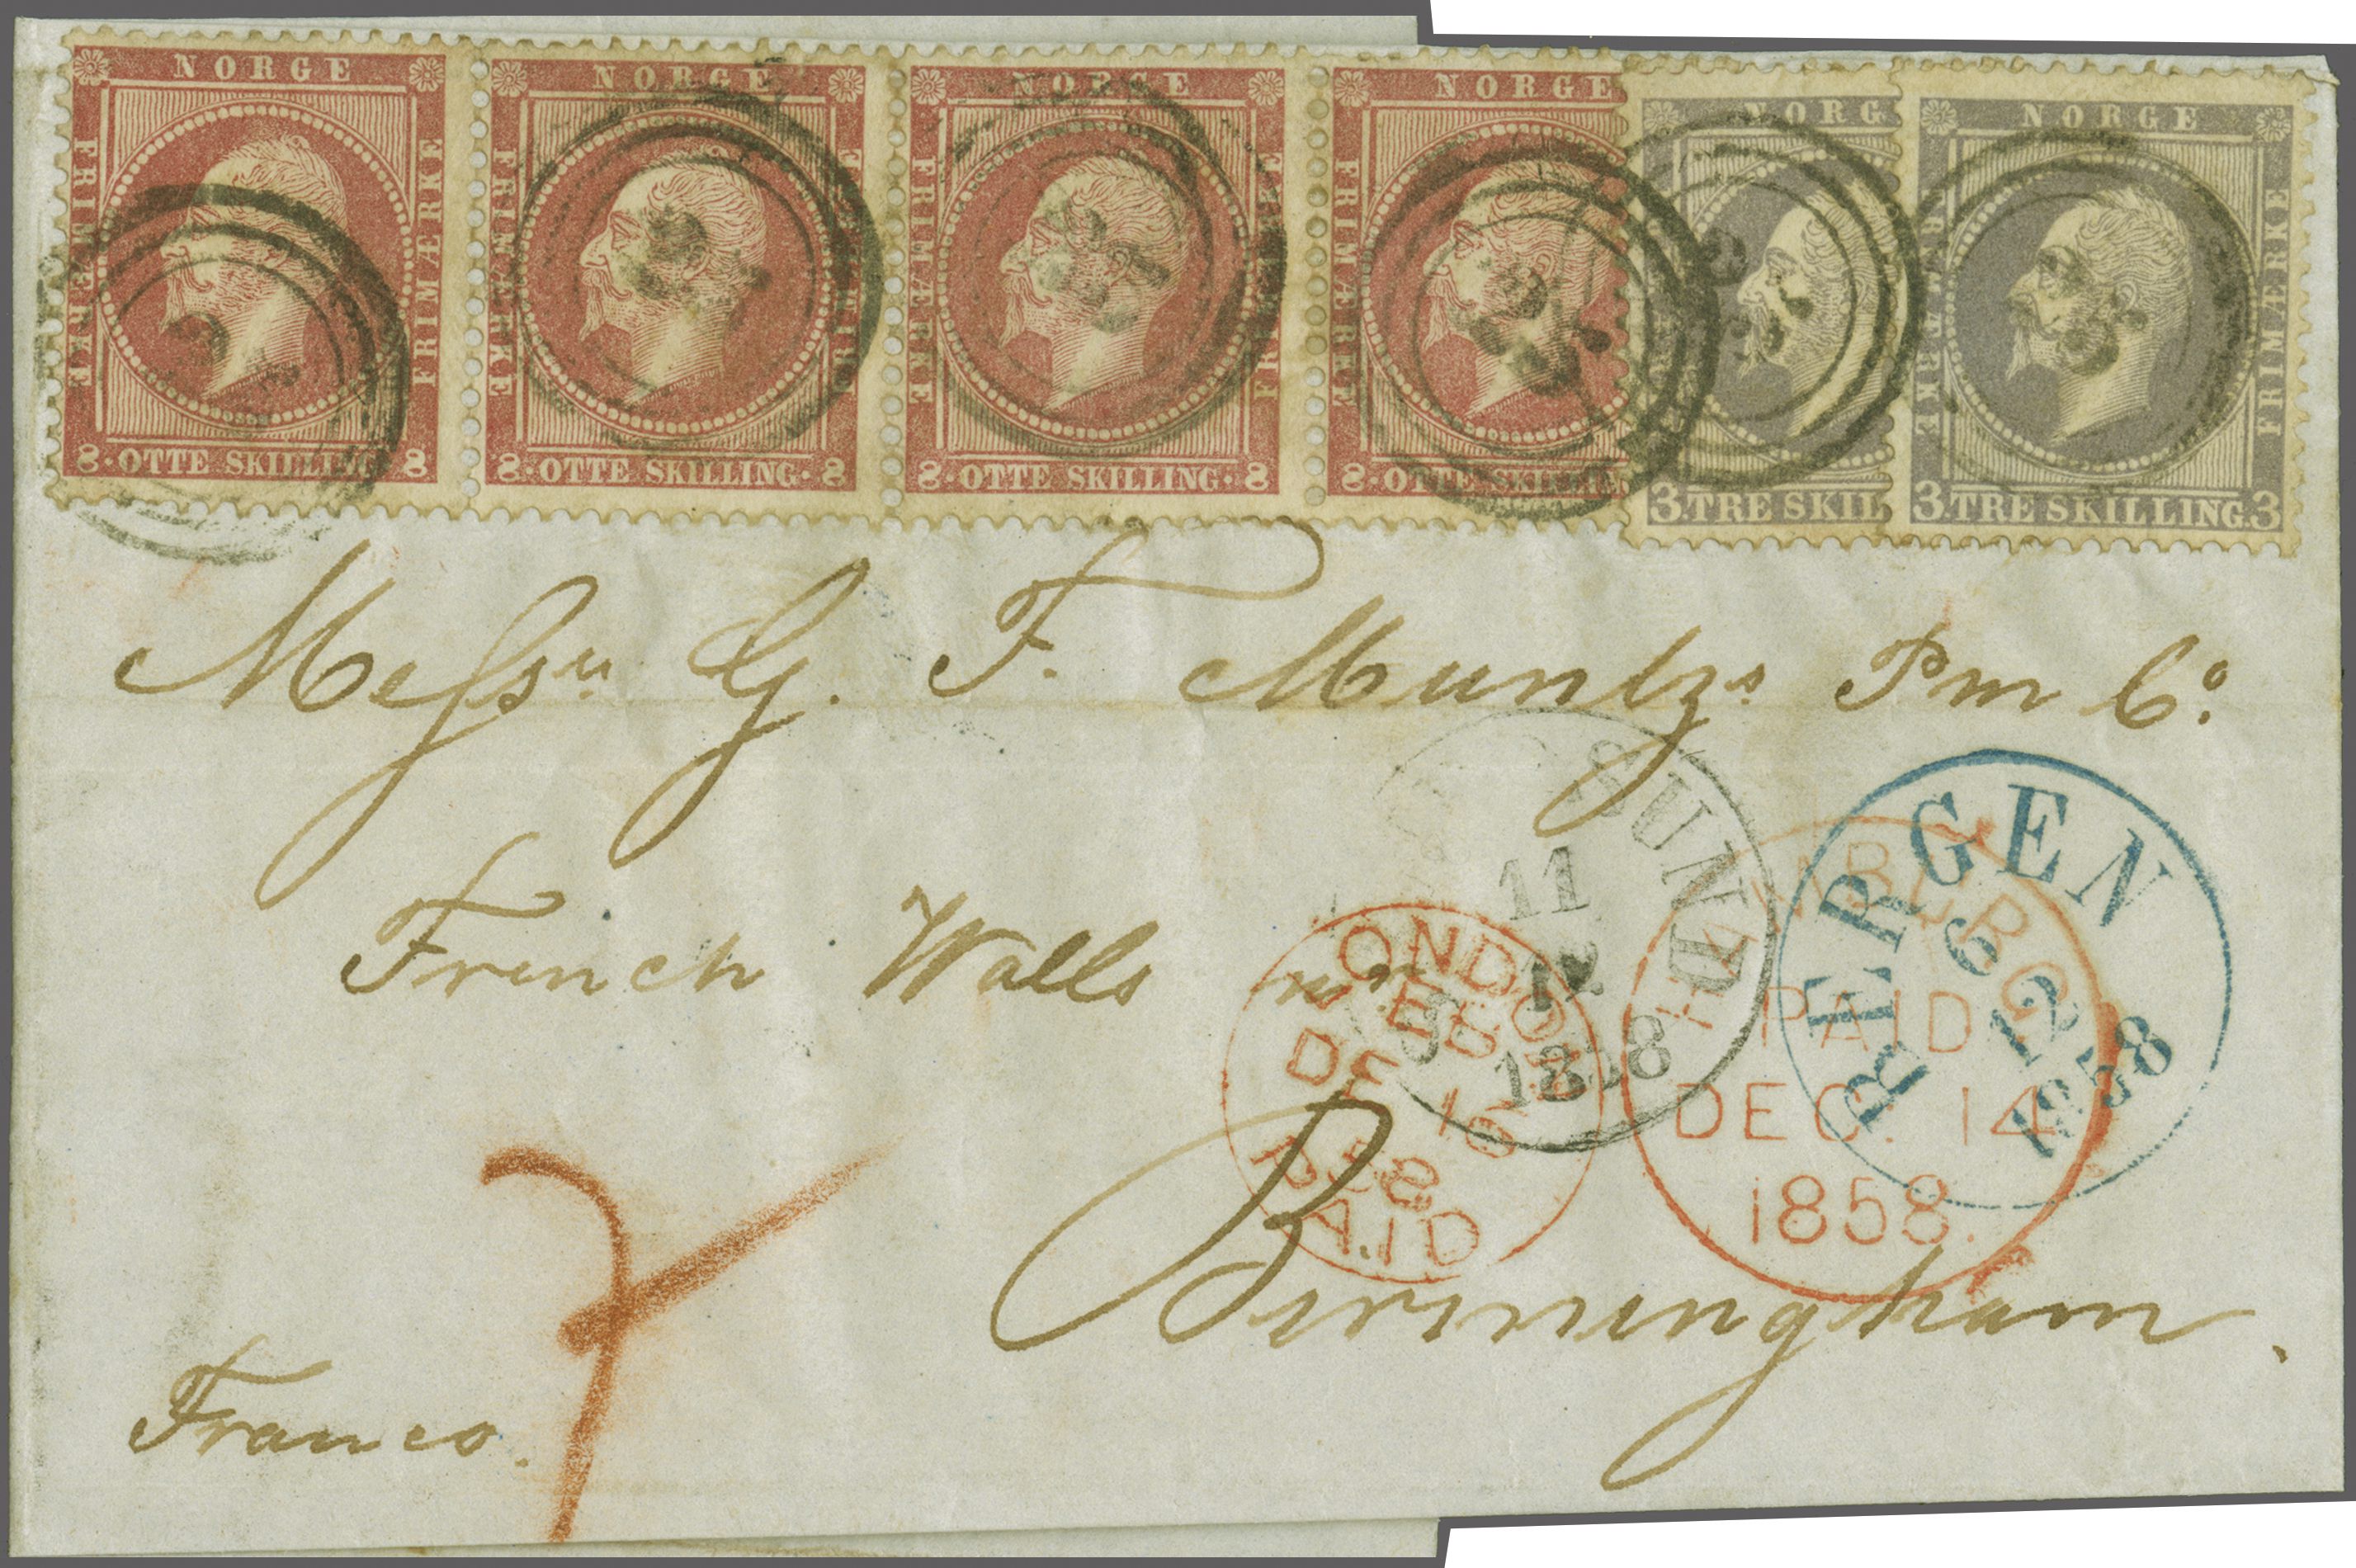 NORGE FRIMÆRKE FRIMÆRKE 8·OTTE SKILLING 8
NORGE FRIMÆRKE FRIMÆRKE 8·OTTE SKILLING·8
NORGE FRIMÆRKE FRIMÆRKE 8·OTTE SKILLING·8
NORGE FRIMÆRKE 8·OTTE SKILLIN
NORG 3 TRE SKIL
NORGE FRIMÆRKE FRIMÆRKE 3 TRE SKILLING 3
Messrs G. F. Muntzs Pm Co.
SUND
11
12
1858
BERGEN
6
12
1858
HAMBURG
PAID
DEC. 14
1858.
French Walls nr
LONDON
DE 16
58
PAID
Birmingham.
7
Franco.